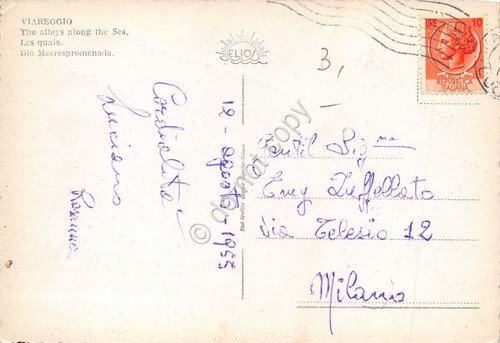 VIAREGGIO
The alleys along the Sea.
Les quais.
Die Meerespromenade.
ELIOS
LIRE 10
REPUBBLICA
ITALIANA
3,
Cordialità
Luciano
Rosanna
12 - agosto - 1955
Gentil Sig.na
Emy Zuffellato
Via Telesio 12
Milano
do not copy